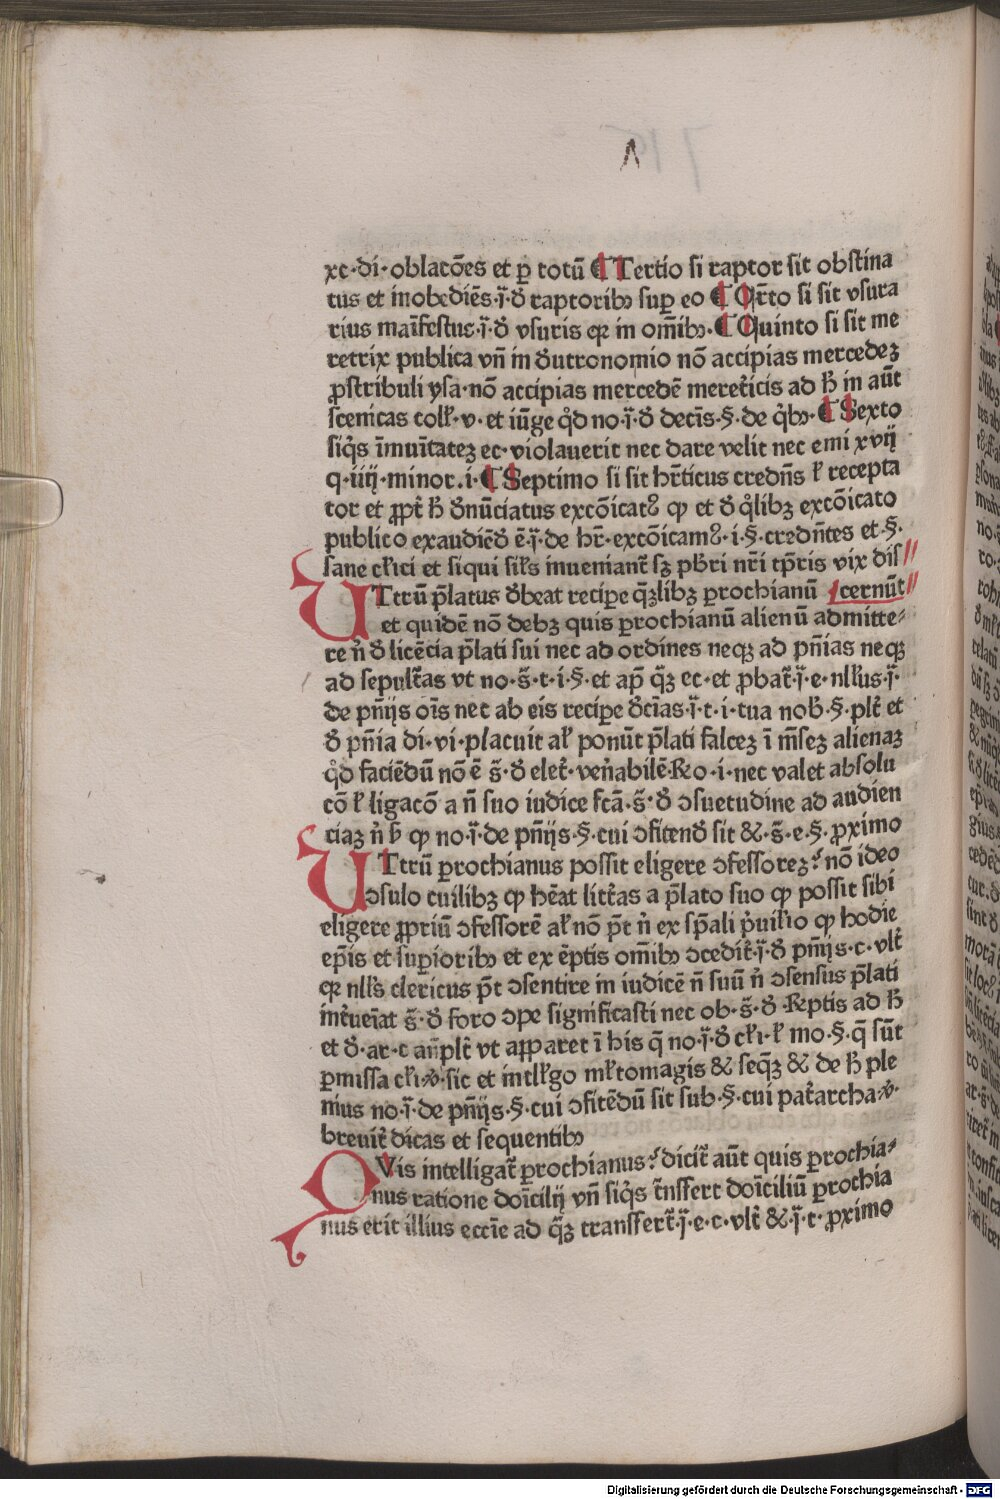 xc·di·oblatōes et ꝑ totū ¶ Tertio si raptor sit obstina
tus et inobediēs·ī·ð raptoribꝫ suꝑ eo ¶ Qr̄to si sit vsura
rius maīfestus·ī·ð vsuris qꝛ in om̄ibꝫ·¶ Quinto si sit me
retrix publica vn̄ in ðutronomio nō accipias mercedeꝫ
ꝓstribuli ysa·nō accipias mercedē meret̄icis ad ḣ in aūt
scenicas coll̄·v·et iūge qͦd no·ī·ð decīs·§·de qͥbꝫ·¶ Sexto
siqͥs īmuītateꝫ ec·violauerit nec dare velit nec emi xvij
q·iiij·minor·i·¶ Septimo si sit hr̄ticus credn̄s ł recepta
tor et ꝓpt̄ ḣ ðnūciatus excōicatꝰ ꝙ et ð qͦlibꝫ excōicato
publico exaudiēð ē·ī·de hr̄·excōicamꝰ·i·§·credn̄tes et·§·
sane cłici et siqui sił̄s inueniant̄ sꝫ pb̄ri nr̄i tp̄ris vix dis
UTtrū p̄latus ðbeat reciꝑe qꝫlibꝫ ꝑochianū cernūt
et quidē nō debꝫ quis ꝑochianū alienū admitte⸗
re n̄ ð licēcia p̄lati sui nec ad ordines neqꝫ ad pn̄ias neqꝫ
ad sepult̄as vt no·s̄·t·i·§·et ap̄ qͣꝫ ec·et ꝓbat̄·ī·e·nll̄us·ī·
de pn̄ijs oīs nec ab eis reciꝑe ðcīas·ī·t·i·tua nob̄·§·plt̄ et
ð pn̄ia di·vi·placuit al̄ ponūt p̄lati falceꝫ ī m̄seꝫ alienaꝫ
qͦd faciēdū nō ē s̄·ð elet̄·ven̄abilē·Ro·i·nec valet absolu
cō ł ligacō a n̄ suo iudice fcā·s̄·ð ɔsuetudine ad audien
ciaꝫ n̄ ƀ ꝙ no·ī·de pn̄ijs·§·cui ɔfitenð sit &·s̄·e·§·ꝓximo
UTtrū ꝑochianus possit eligere ɔfessoreꝫ? nō ideo
ɔsulo cuilibꝫ ꝙ hēat litt̄as a p̄lato suo ꝙ possit sibi
eligere ꝓpriū ɔfessorē al̄ nō p̄t n̄ ex sp̄ali p̄uil̄io ꝙ hodie
ep̄is et suꝑioribꝫ et ex ēptis om̄ibꝫ ɔcedit̄·ī·ð pn̄ijs·c·vlt̄
qꝛ nll̄s clericus p̄t ɔsentire in iudicē n̄ suū n̄ ɔsensus p̄lati
int̄ueīat s̄·ð foro ɔpe significasti nec ob·s̄·ð·Reptis ad ḣ
et ð·ar·c an̄plt̄ vt apparet ī his q̄ no·ī·ð cłi·ł mo·§·q̄ sūt
ꝑmissa cłi·v̄·sic et intll̄go ml̄tomagis & seqͣꝫ & de ḣ ple
nius no·ī·de pn̄ijs·§·cui ɔfitēdū sit sub·§·cui pat̄archa·v̄·
breuit̄ dicas et sequentibꝫ
QVis intelligat̄ ꝑochianus? dicit̄ aūt quis ꝑochia⸗
nus ratione doīcilij vn̄ siqͥs t̄nsfert doīciliū ꝑochia
nus erit illius eccīe ad qͣꝫ transfert̄·ī·e·c·vlt̄ &·ī·t·ꝓximo
Digitalisierung gefördert durch die Deutsche Forschungsgemeinschaft · DFG